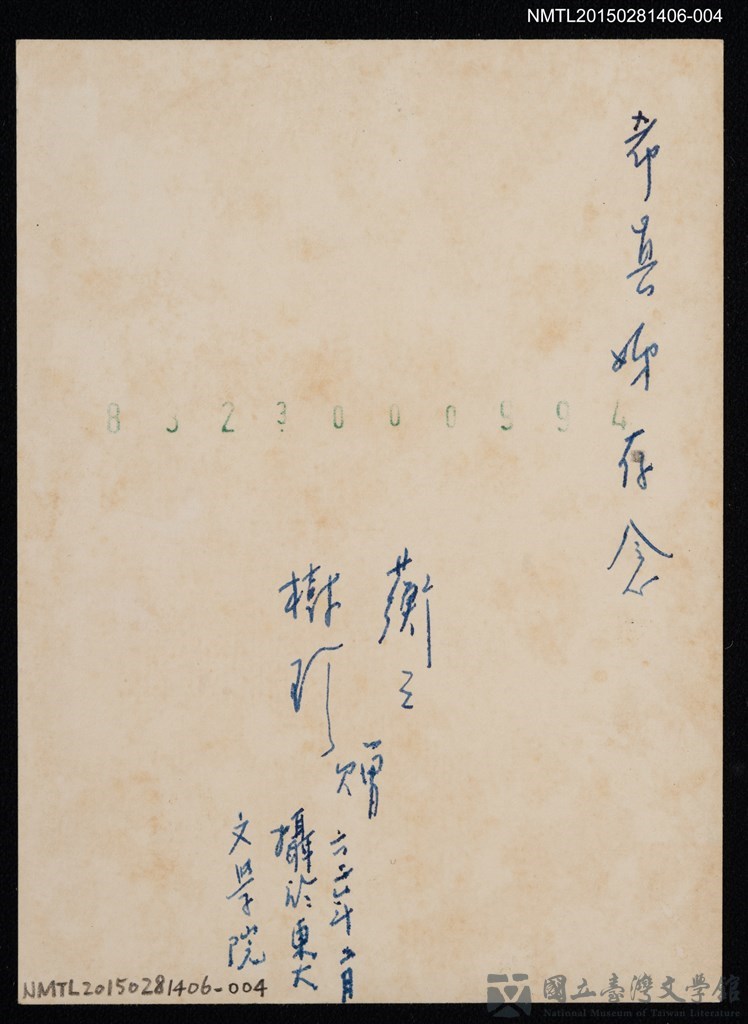 NMTL20150281406-004
希真姊存念
蘅之
樹珍
贈
攝於東大
文學院
NMTL20150281406-004
國立臺灣文學館
National Museum of Taiwan Literature